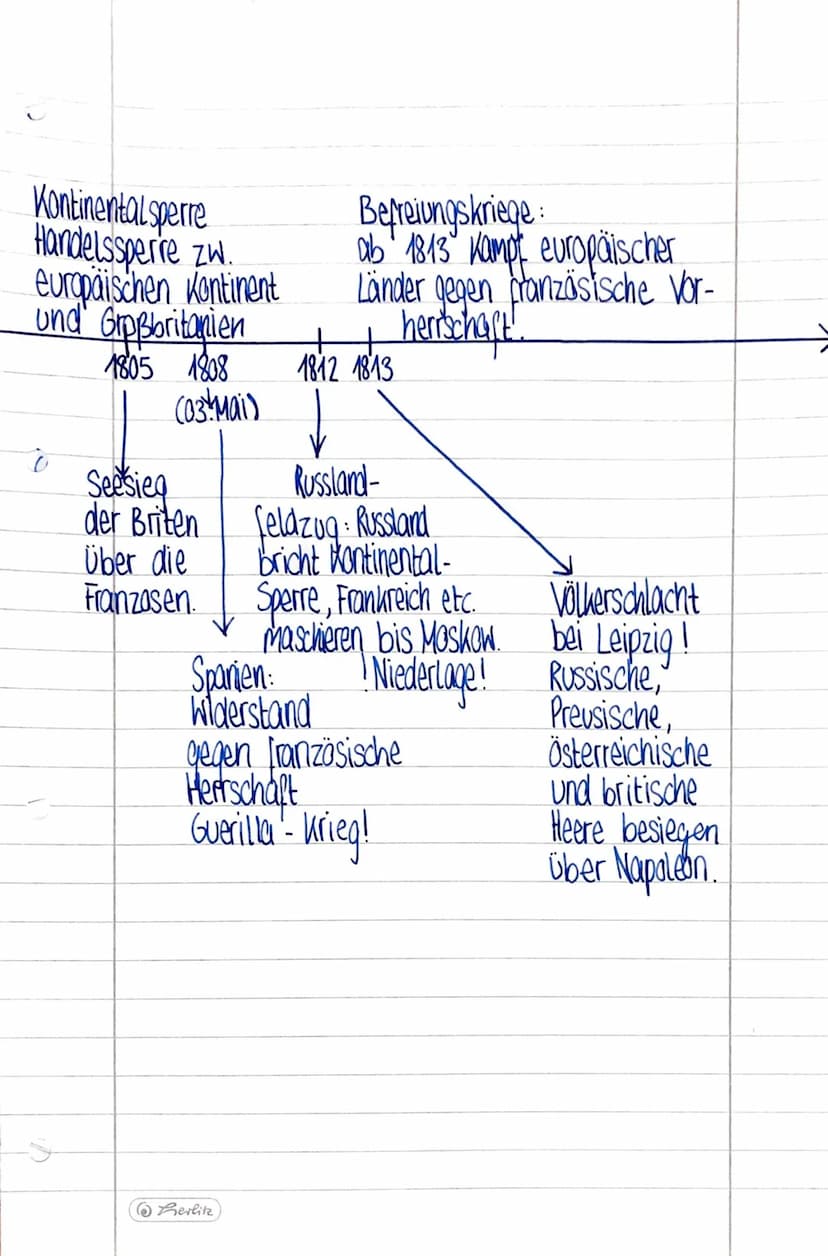 Kontinentalsperre
Handelssperre zw.
europäischen Kontinent
und Großbritanien
Befreiungskriege:
ab 1813 Kampf europäischer
Länder gegen französische Vor-
herrschaft!
1805
1808
(03. Mai)
1812
1813
Seesieg
der Briten
über die
Franzosen.
Spanien:
Widerstand
gegen französische
Herrschaft
Guerilla-Krieg!
Russland-
feldzug: Russland
bricht Kontinental-
Sperre, Frankreich etc.
maschieren bis Moskow.
! Niederlage!
Völkerschlacht
bei Leipzig!
Russische,
Preusische,
österreichische
und britische
Heere besiegen
über Napoleon.
Herlitz